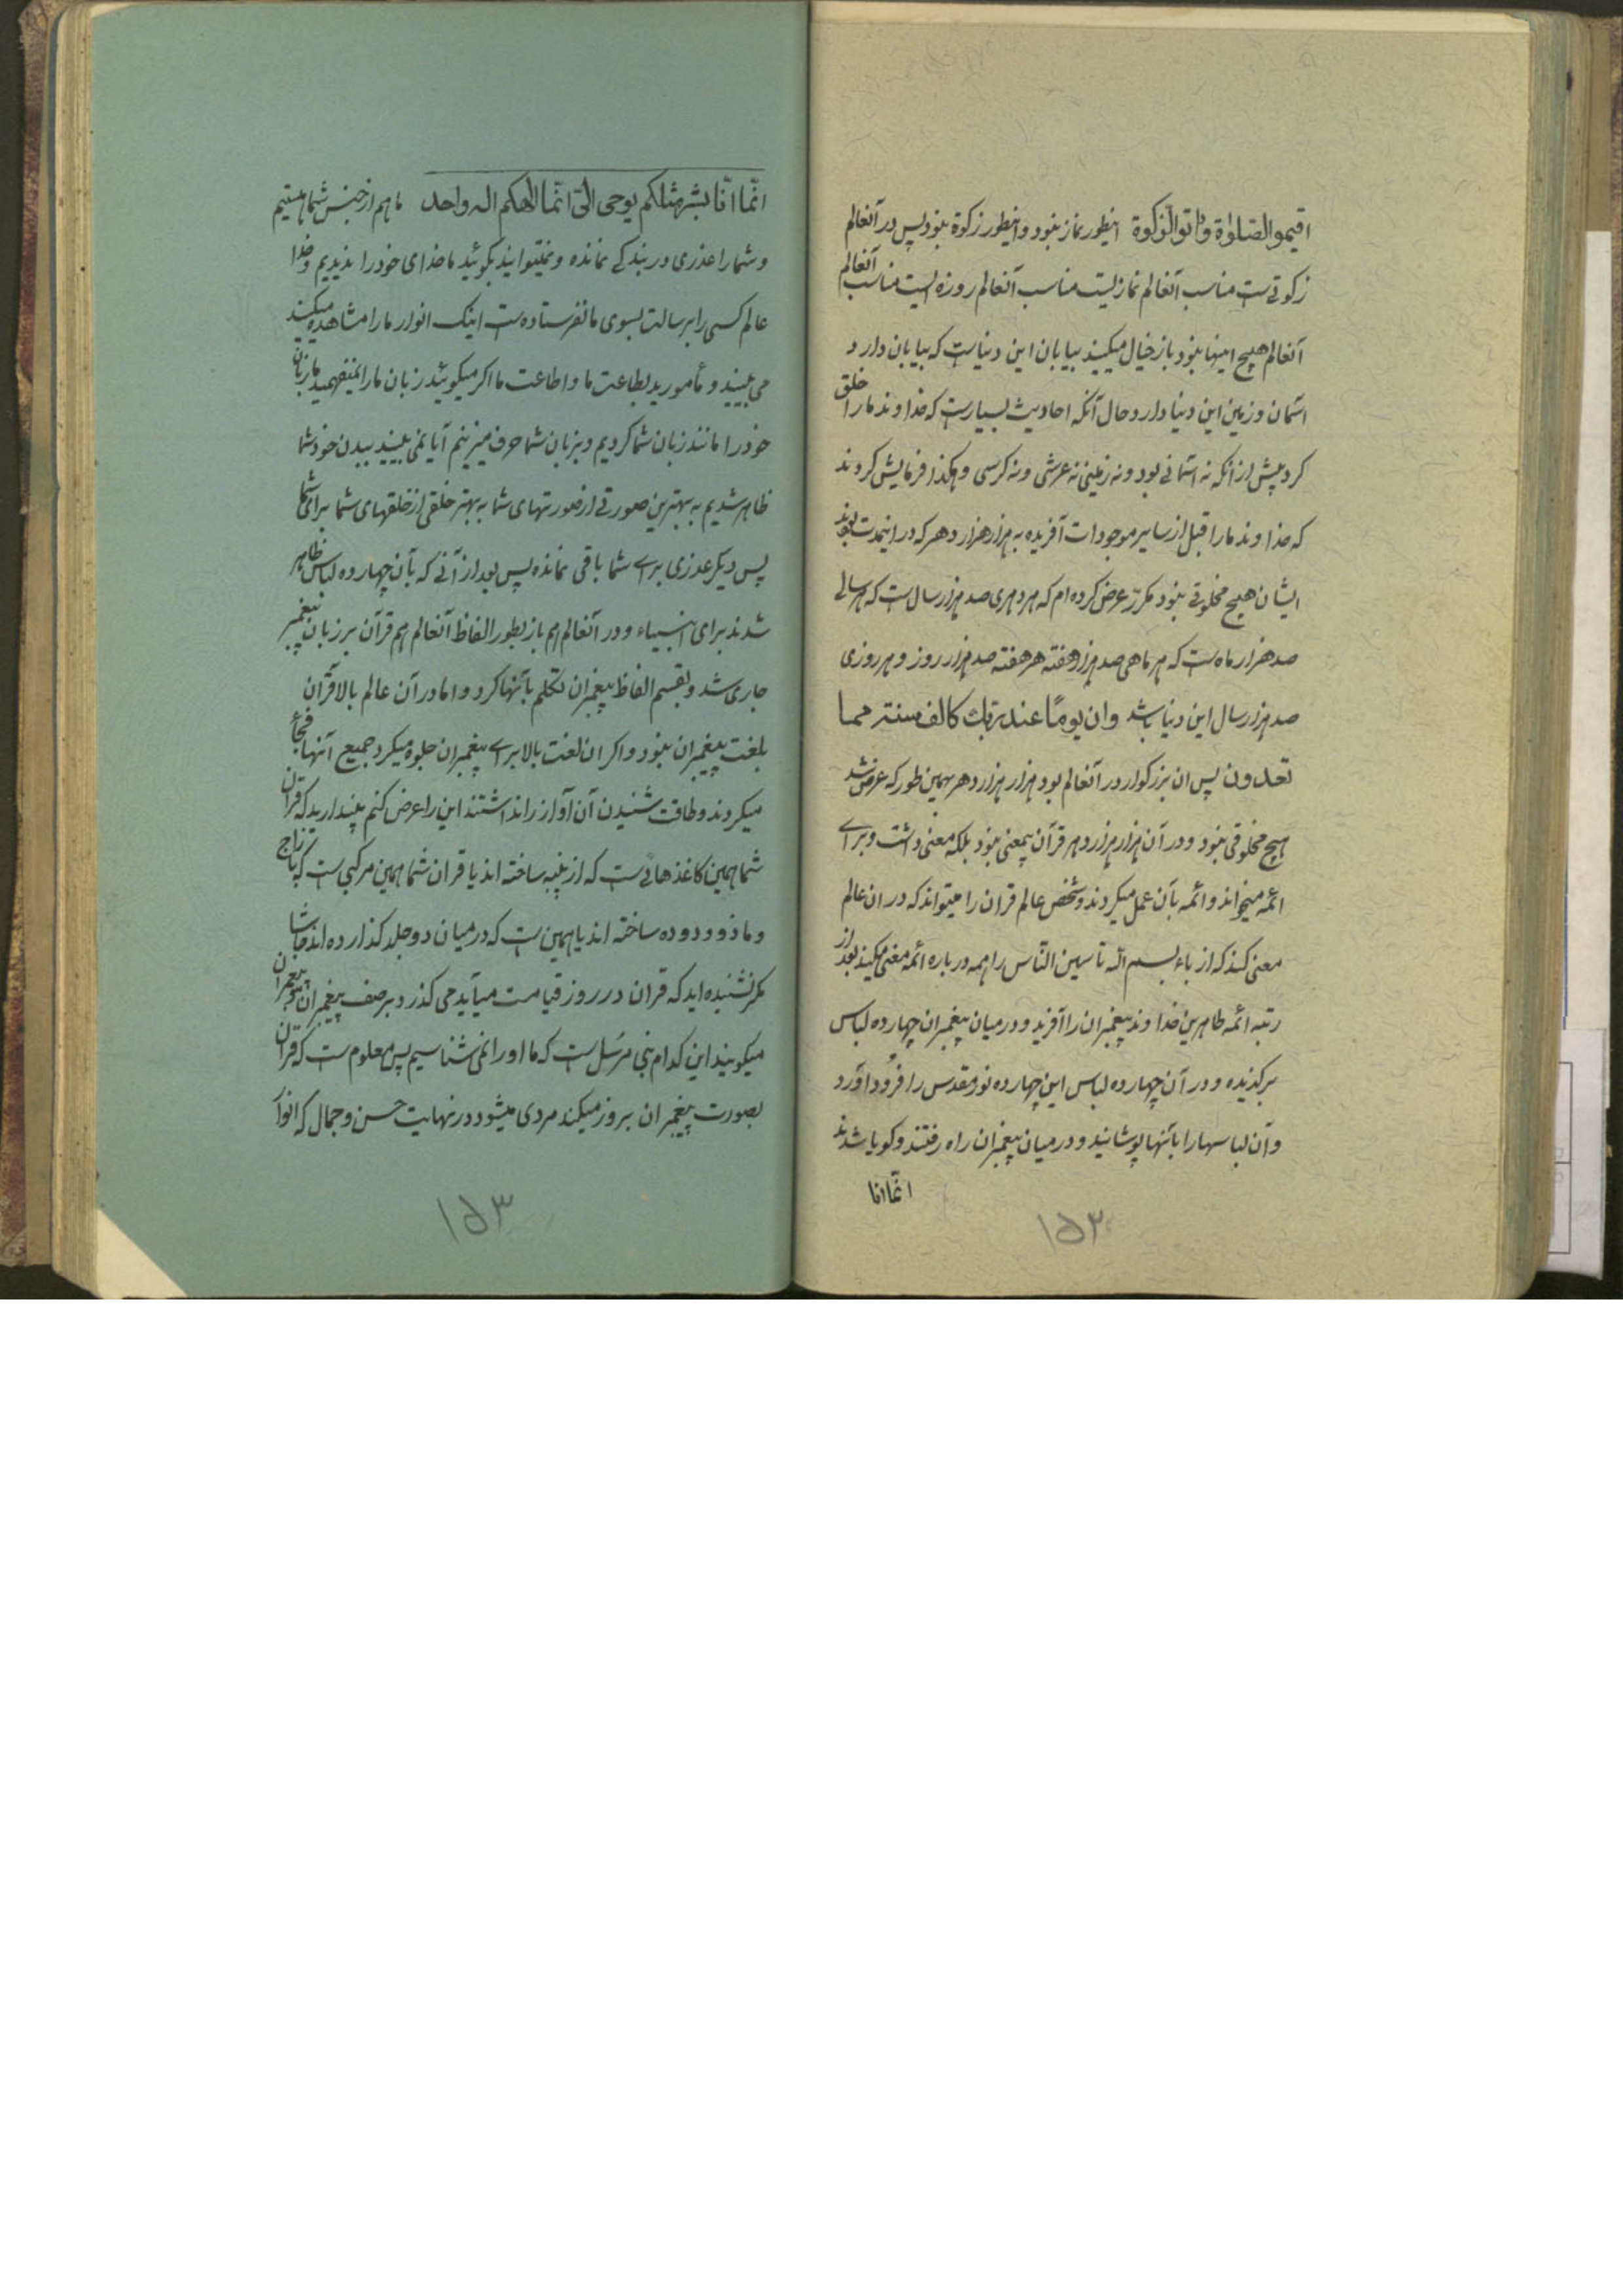 اقیمو الصلوٰة واتو الزکوة اینطور نماز نبود و اینطور زکوة نبود پس در آنعالم
زکوتی‌ست مناسب آنعالم نمازیست مناسب آنعالم روزه‌ایست مناسب آنعالم
آنعالم هیچ اینها نبود باز خیال میکنید بیابان این دنیاست که بیابان دارد
آسمان و زمین این دنیا دارد و حال آنکه احادیث بسیارست که خداوند ما را خلق
کرد پیش از آنکه نه آسمانی بود و نه زمینی نه عرشی و نه کرسی و هکذا فرمایش کردند
که خداوند ما را قبل از سایر موجودات آفریده به هزار هزار دهر که در اینمدت بودند
ایشان هیچ مخلوقی نبود مکرّر عرض کرده‌ام که هر دهری صد هزار سال ست که هر سالی
صد هزار ماه ست که هر ماهی صد هزار هفته هر هفته صد هزار روز و هر روزی
صد هزار سال این دنیا باشد وان یومًا عند ربك کالف سنة مما
تعدون پس ان بزرکوار در آنعالم بود هزار هزار دهر همین طور که عرض شد
هیچ مخلوقی نبود و در آن هزار هزار دهر قرآن بیمعنی نبود بلکه معنی داشت و برای
ائمه میخواند و ائمه بآن عمل میکردند و شخص عالم قران را میتواند که در ان عالم
معنی کند که از باء بسم اللّه تا سین النّاس را همه درباره ائمه معنی میکند بعد از
رتبه ائمه طاهرین خداوند پیغمبران را آفرید و در میان پیغمبران چهارده لباس
برکزیده و در آن چهارده لباس این چهارده نور مقدس را فرود آورد
و آن لباسها را بآنها پوشانید و در میان پیغمبران راه رفتند و کویا شدند
انّما انا
۱۵۲
انّما انا بشر مثلکم یوحی الیّ انّما الهکم اله واحد ما هم از جنس شما هستیم
و شما را عذری در بندکی نمانده و نمیتوانید بکوئید ما خدای خود را ندیدیم و خدا
عالم کسی را برسالت بسوی ما نفرستاده ست اینک انوار ما را مشاهده میکنید
می بینید و مأمورید بطاعت ما و اطاعت ما اکر میکوئید زبان ما را نمیفهمید ما زبان
خود را مانند زبان شما کردیم و بزبان شما حرف میزنیم آیا نمی بینید ببدن خود شما
ظاهر شدیم به بهترین صورتی از صورتهای شما به بهتر خلقی از خلقهای شما برای شما
پس دیکر عذری برای شما باقی نمانده پس بعد از آنی که بآن چهارده لباس ظاهر
شدند برای انبیاء و در آنعالم هم باز بطور الفاظ آنعالم هم قرآن بر زبان پیغمبر
جاری شد و بقسم الفاظ پیغمبران تکلم بآنها کرد و اما در آن عالم بالا قرآن
بلغت پیغمبران نبود و اکر ان لغت بالا برای پیغمبران جلوه میکرد جمیع آنها فجأ
میکردند و طاقت شنیدن آن آواز را نداشتند این را عرض کنم پندارید که قرآن
شما همین کاغذهائی ست که از پنبه ساخته اند یا قران شما همین مرکبی ست که با زاج
و ماذو و دوده ساخته اند یا همین ست که در میان دو جلد کذارده اند حاشا
مکر نشنیده اید که قران در روز قیامت میآید می کذرد بر صف پیغمبران پیغمبران
میکویند این کدام نبی مرسَل ست که ما او را نمی شناسیم پس معلوم ست که قرآن
بصورت پیغمبران بروز میکند مردی میشود در نهایت حسن و جمال که انوا
۱۵۳